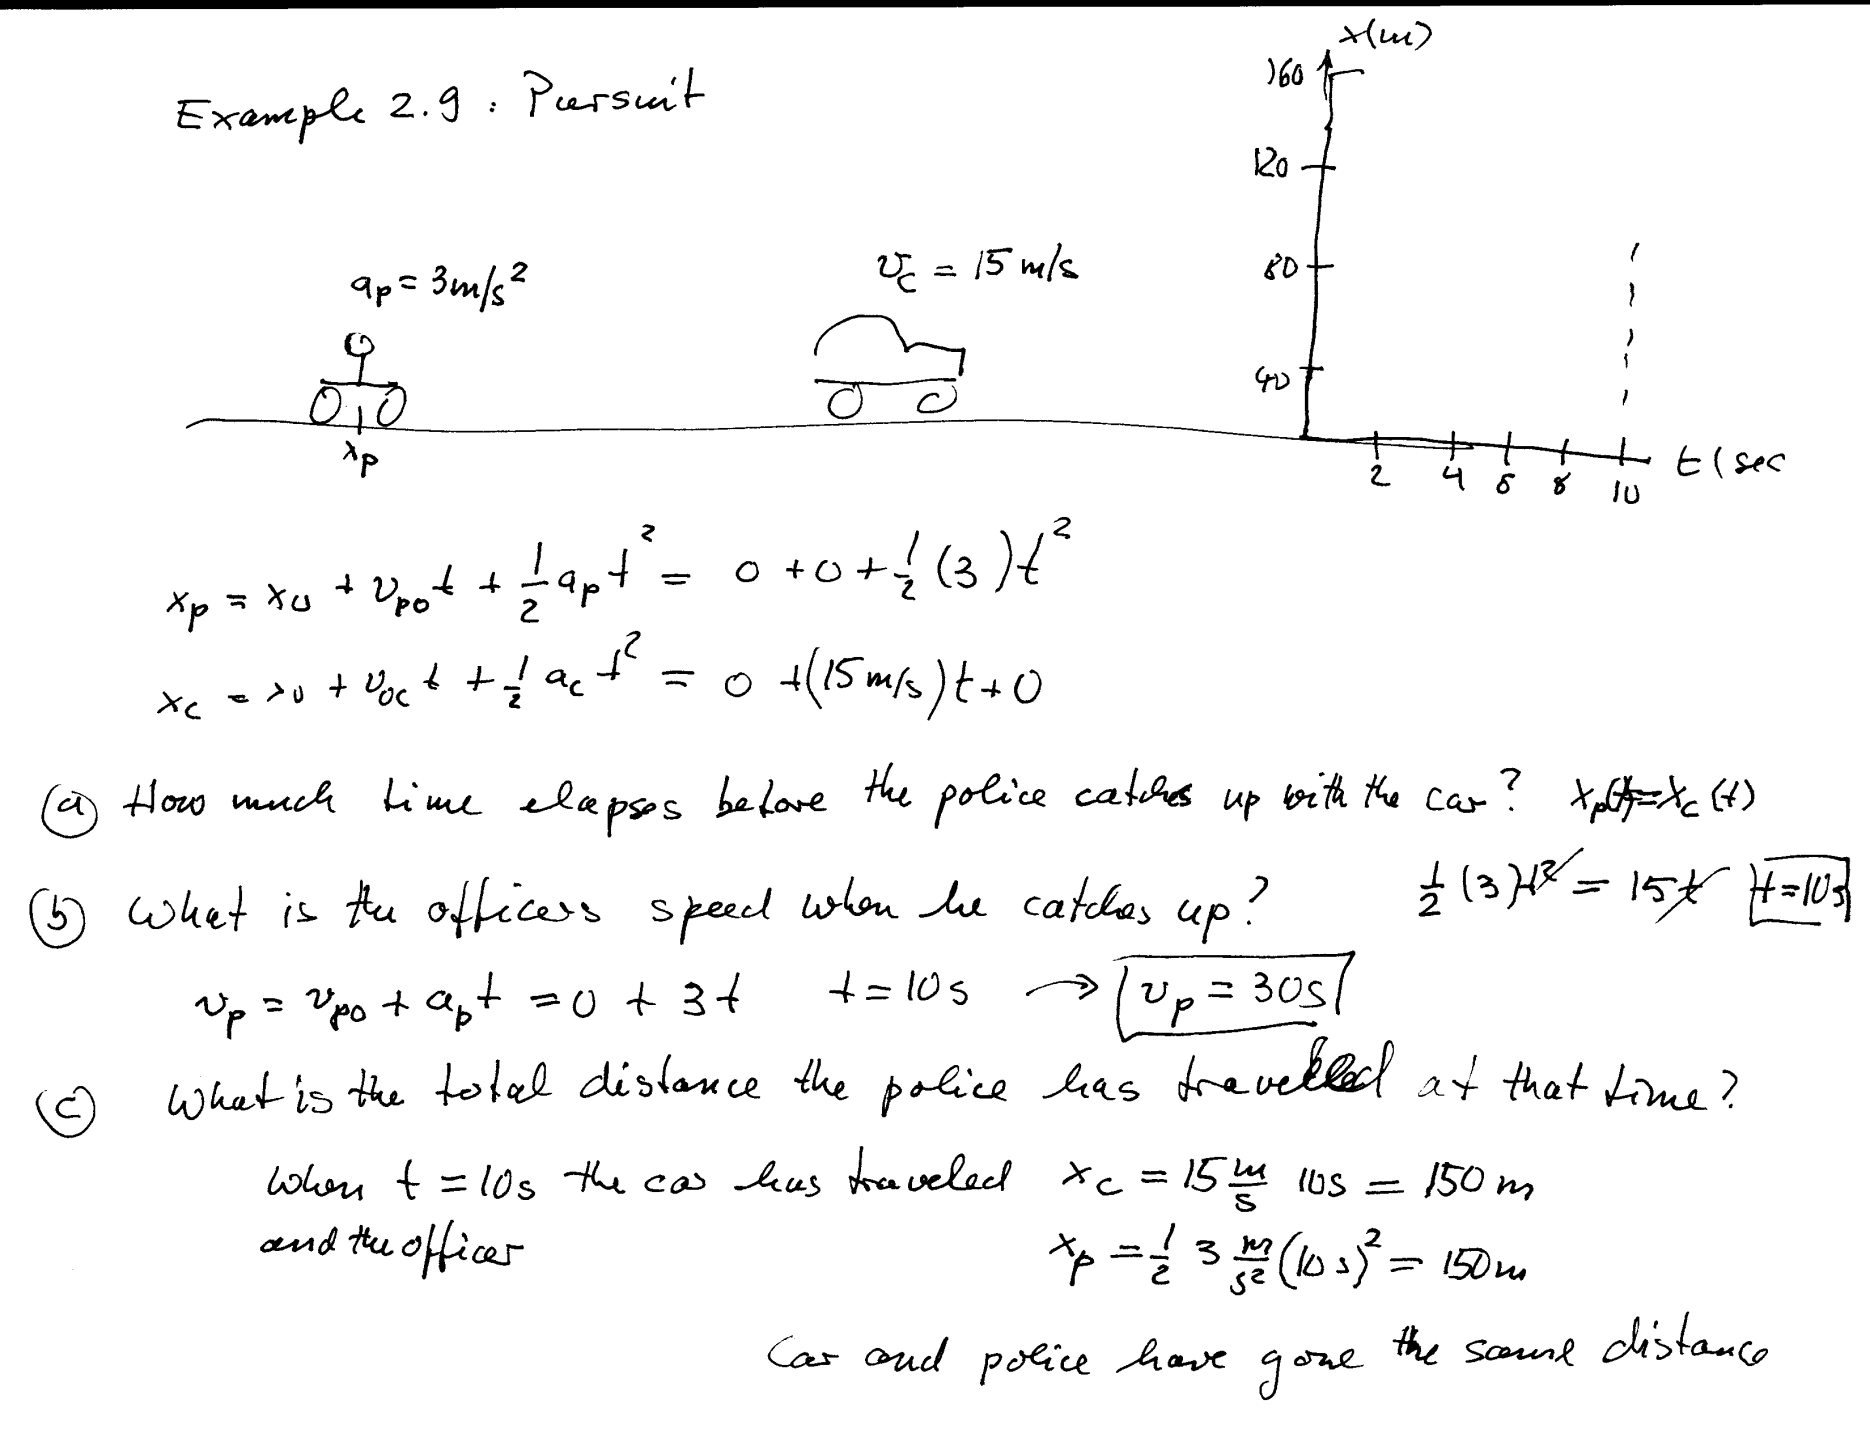 Example 2.9 : Pursuit
x(m)
160
120
80
40
2 4 6 8 10
t(sec
a_p = 3m/s²
v_c = 15 m/s
x_p
x_p = x_0 + v_p0 t + 1/2 a_p t² = 0 + 0 + 1/2 (3) t²
x_c = x_0 + v_0c t + 1/2 a_c t² = 0 + (15 m/s) t + 0
(a) How much time elapses before the police catches up with the car? x_p(t) = x_c(t)
1/2 (3) t² = 15 t t = 10s
(b) What is the officers speed when he catches up?
v_p = v_p0 + a_p t = 0 + 3t t = 10s → v_p = 30s
(c) What is the total distance the police has travelled at that time?
When t = 10s the car has traveled x_c = 15 m/s 10s = 150 m
and the officer x_p = 1/2 3 m/s² (10 s)² = 150m
Car and police have gone the same distance